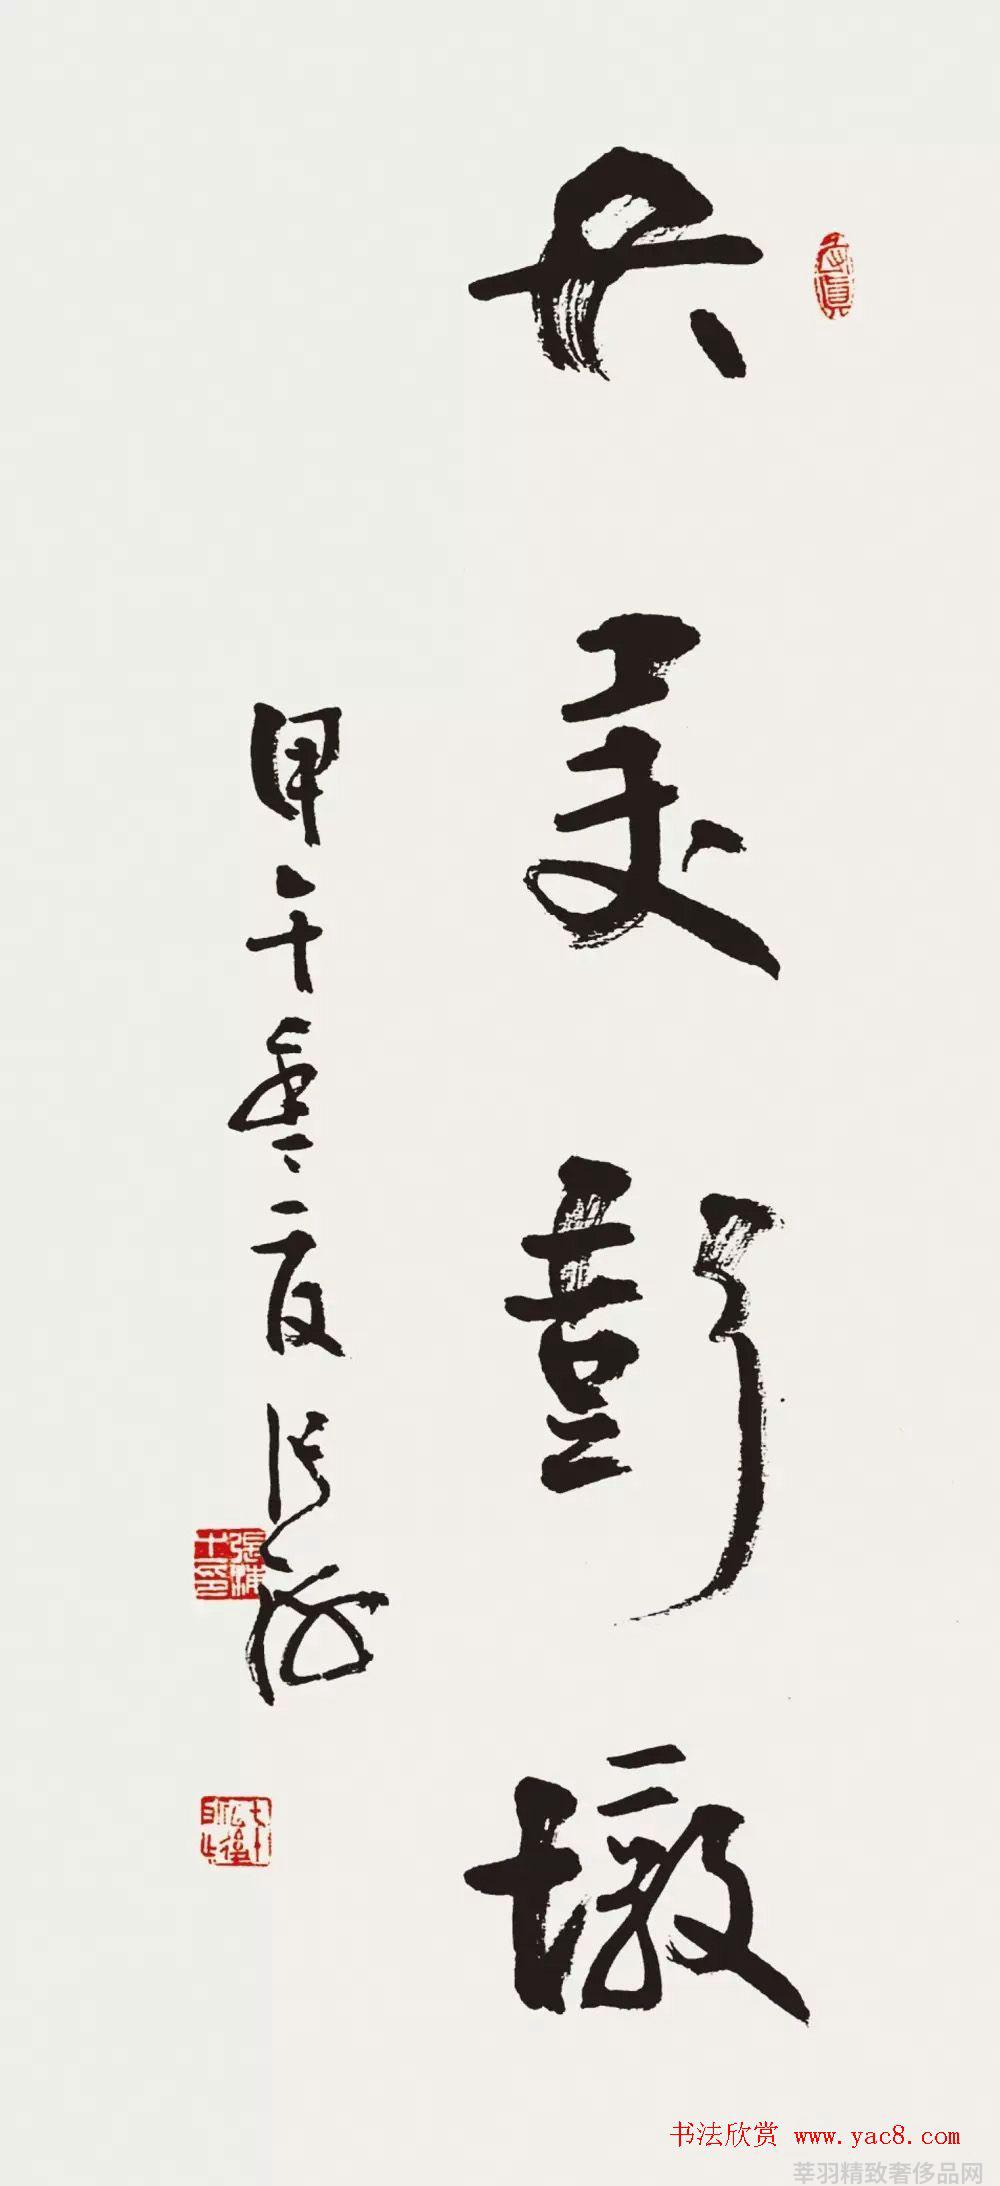 大美彭墩
甲午夏 张
书法欣赏 www.yac8.com
莘羽精致奢侈品网